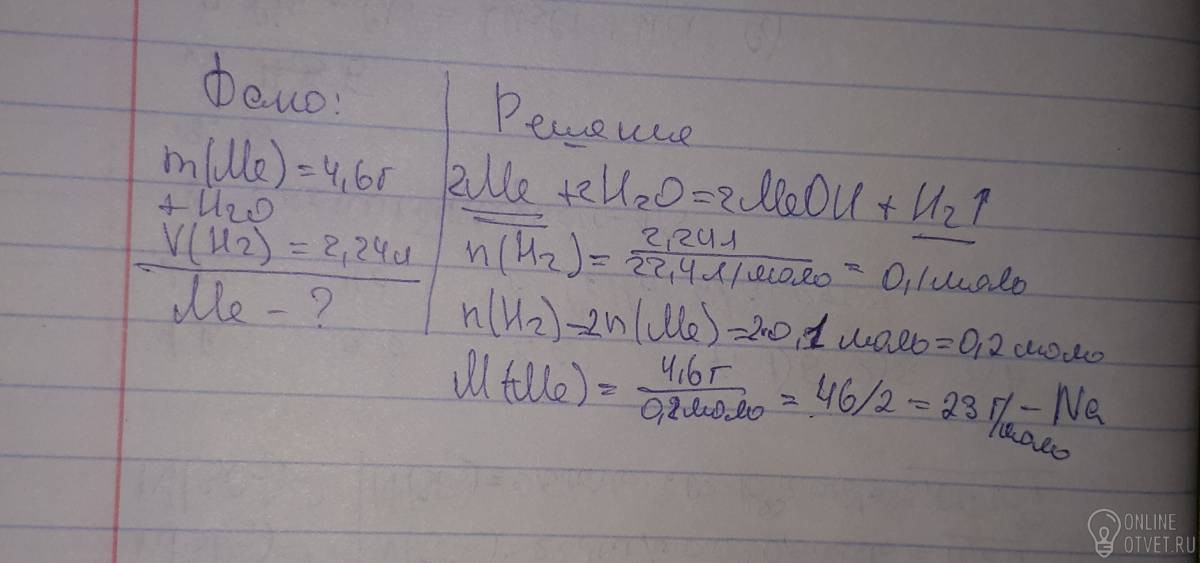 Дано:
m(Me) = 4,6г
+ H2O
V(H2) = 2,24л
Me - ?
Решение
2Me + 2H2O = 2MeOH + H2↑
n(H2) = 2,24л / 22,4л/моль = 0,1моль
n(H2) - 2n(Me) = 2·0,1 моль = 0,2 моль
M(Me) = 4,6г / 0,2моль = 46/2 = 23 г/моль - Na
ONLINE
OTVET.RU